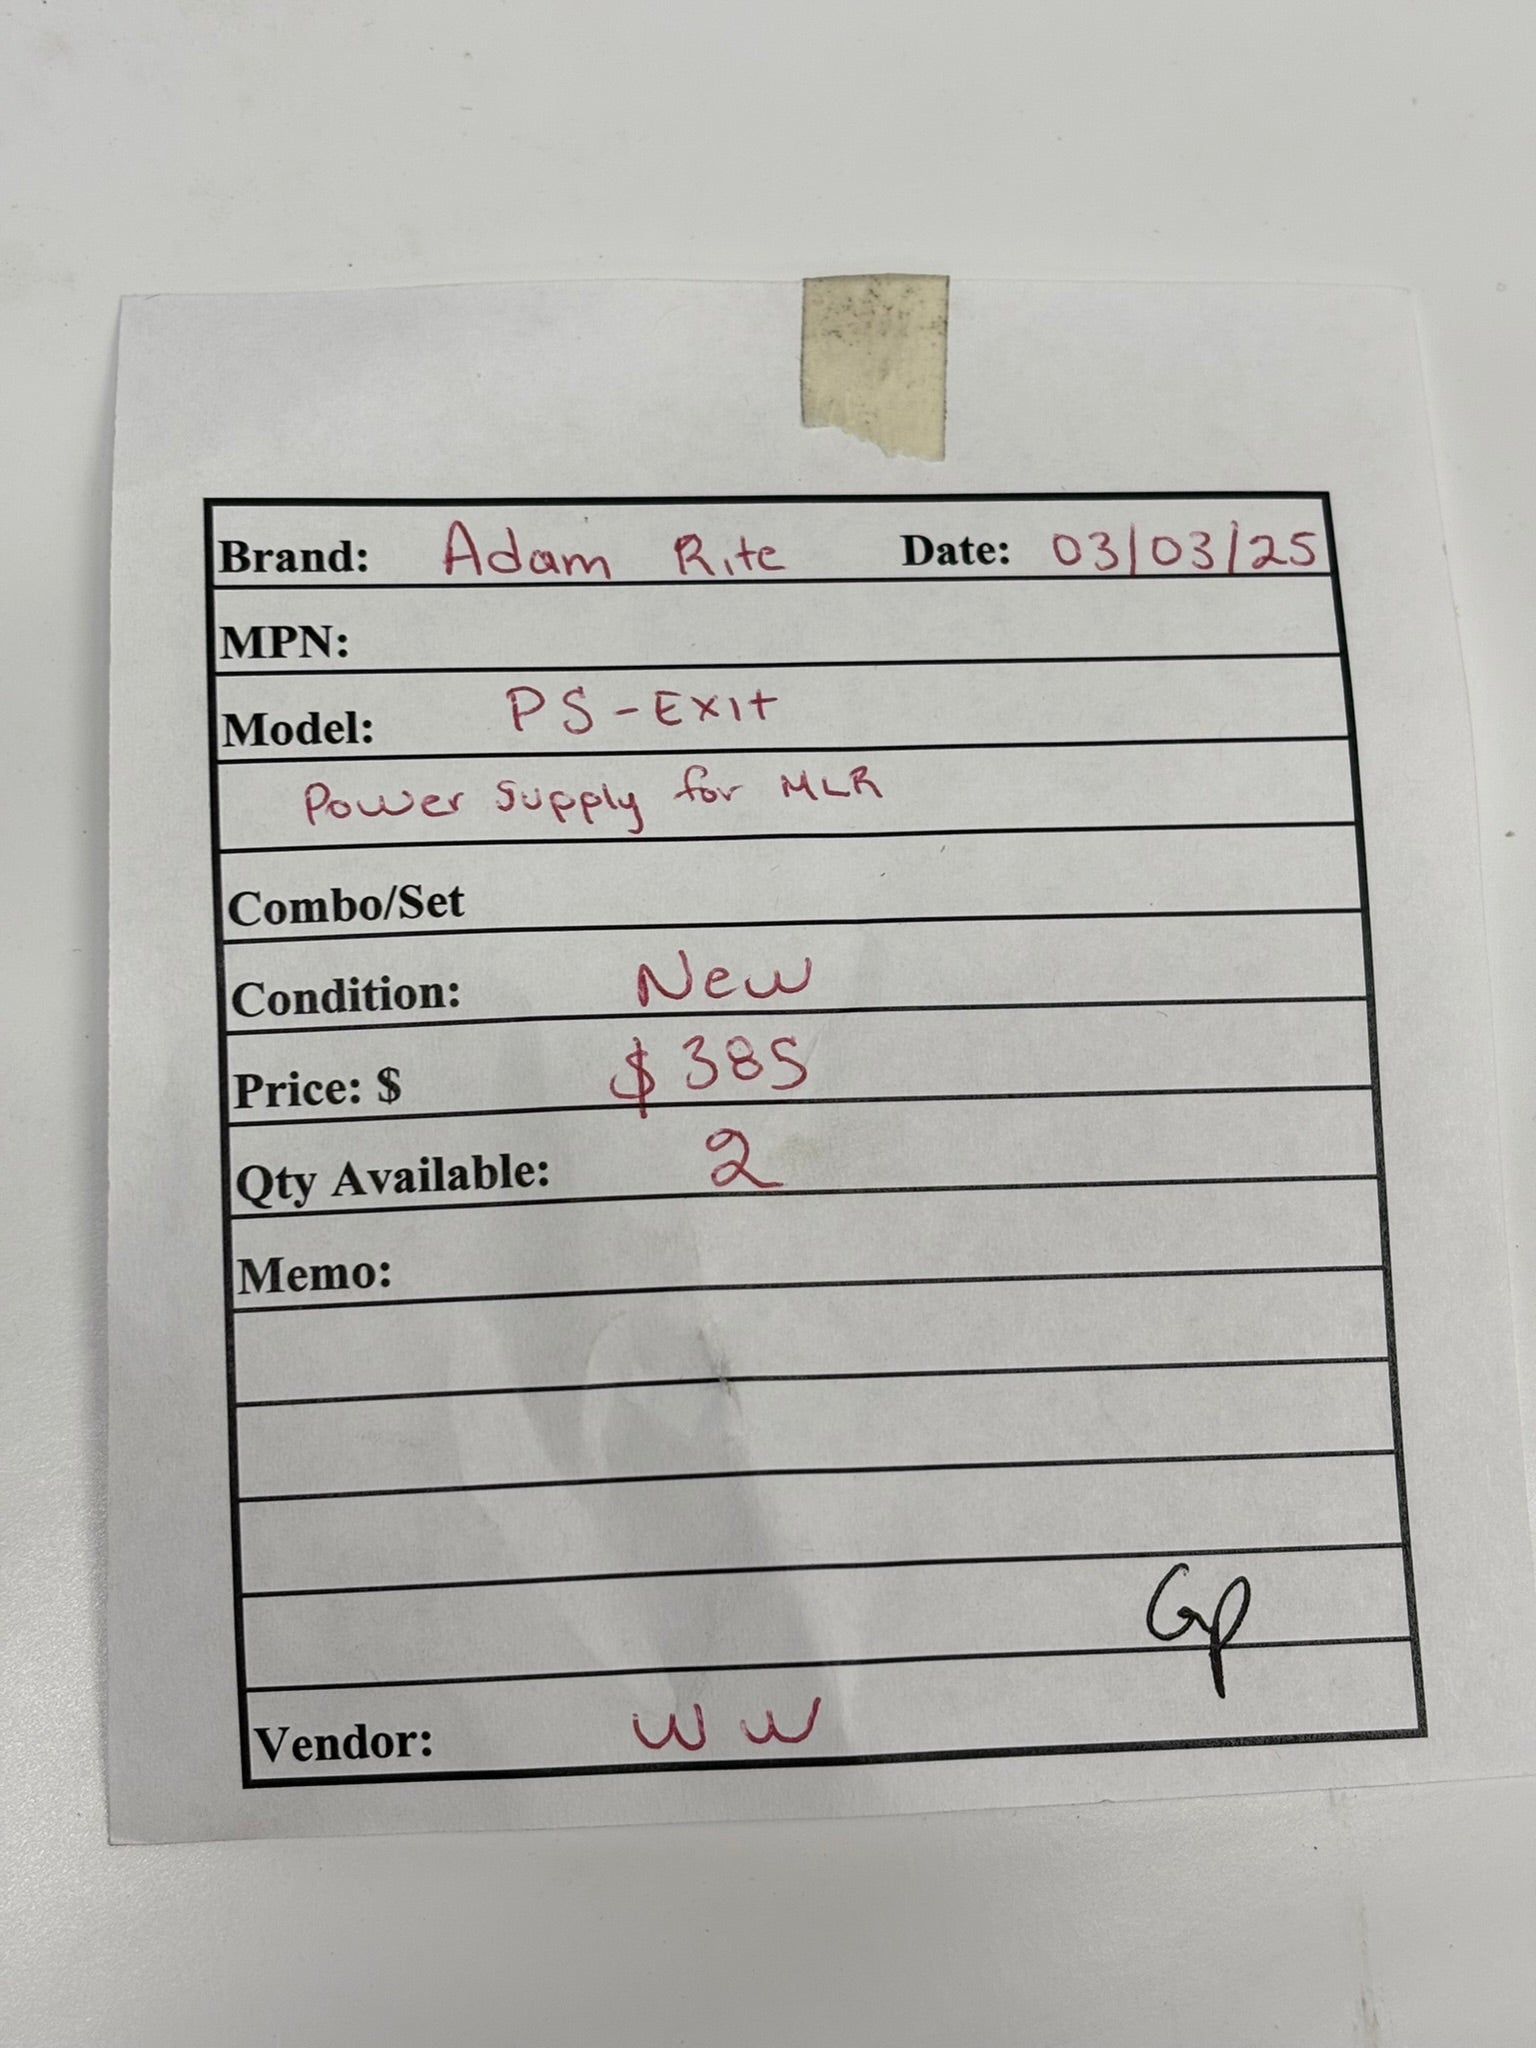 Brand: Adam Rite Date: 03/03/25
MPN:
Model: PS-Exit
Power Supply for MLR
Combo/Set
Condition: New
Price: $ $385
Qty Available: 2
Memo:
Gp
Vendor: WW